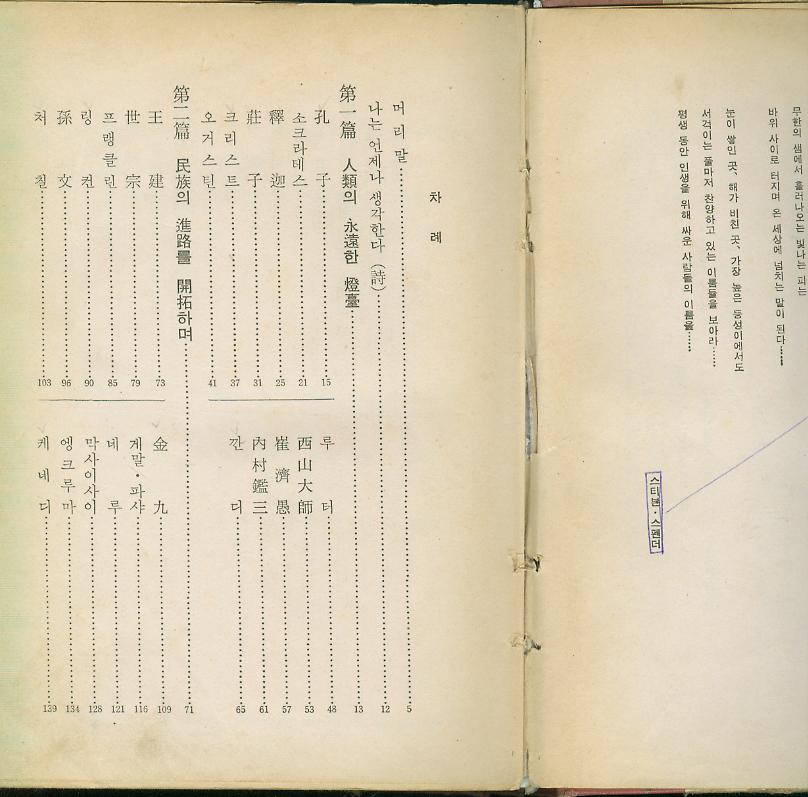 무한의 샘에서 흘러나오는 빛나는 피는
바위 사이로 터지며 온 세상에 넘치는 말이 된다……
눈이 쌓인 곳, 해가 비친 곳, 가장 높은 등성이에서도
서걱이는 풀마저 찬양하고 있는 이름들을 보아라……
평생 동안 인생을 위해 싸운 사람들의 이름을……
스티븐·스펜더
차 례
머리말 5
나는 언제나 생각한다 (詩) 12
第一篇 人類의 永遠한 燈臺 13
孔子 15
소크라테스 21
釋迦 25
莊子 31
크리스트 37
오거스틴 41
루터 48
西山大師 53
崔濟愚 57
內村鑑三 61
깐디 65
第二篇 民族의 進路를 開拓하며 71
王建 73
世宗 79
프랭클린 85
링컨 90
孫文 96
처칠 103
金九 109
케말·파샤 116
네루 121
막사이사이 128
엥크루마 134
케네디 139